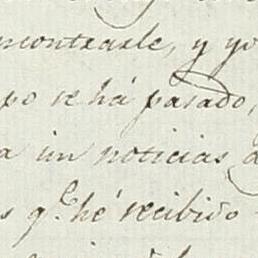 encontrarle, y yo
po se há pasado,
a im noticias, a
s q.e hé recibido